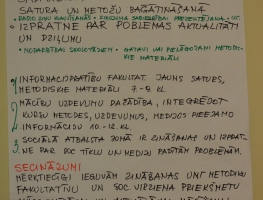 SATURA UN METOŽU BAGĀTINĀŠANA
IZPRATNE PAR POBLĒMAS AKTUALITĀTI
UN DZIĻUMU
• NODARBĪBAS SKOLOTĀJIEM • GATAVI VAI PIELĀGOJAMI METODIS-
KIE MATERIĀLI
1) INFORMĀCIJPRATĪBU FAKULTAT. JAUNS SATURS,
METODISKIE MATERIĀLI 7.-9. KL.
2) MĀCĪBU UZDEVUMU DAŽĀDĪBA, INTEGRĒJOT
KURSU METODES, UZDEVUMUS, MEDIJOS PIEEJAMO
INFORMĀCIJU 10.-12. KL.
3. SOCIĀLĀ ATBALSTA JOMĀ IR ZINĀŠANAS UN IZPRAT-
NE PAR SOC TĪKLU UN MEDIJU RADĪTĀM PROBLĒMĀM.
SECINĀJUMI
MĒRĶTIECĪGI IEGUVĀM ZINĀBANAS UN METODIKU
FAKULTATĪVU UN SOC. VIRZIENA PRIEKŠMETU